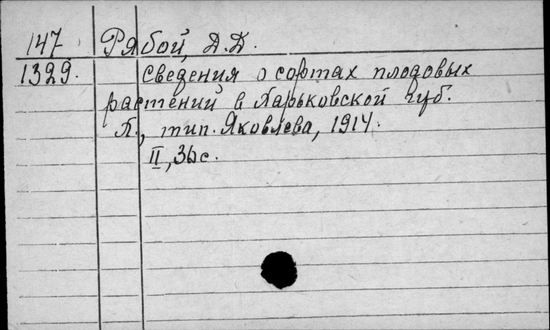 147 Рябой, Д.Д.
1329. Сведения о сортах плодовых
растений в Харьковской губ.
П., тип. Яковлева, 1914.
II, 36 с.